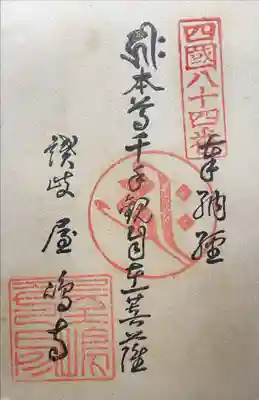 四國八十四番
奉納経
𑖮𑖿𑖨𑖱𑖾 本尊千手観自在菩薩
讃岐 屋嶋寺